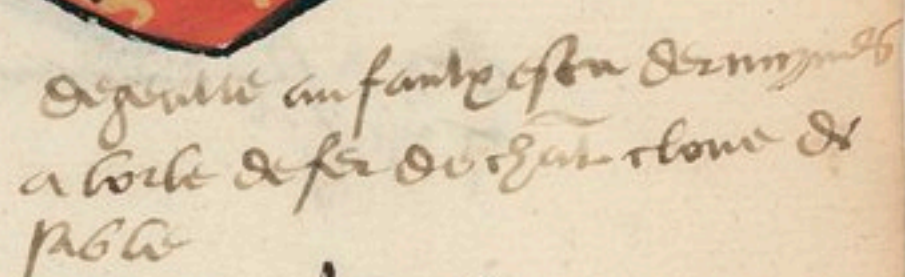 de geulle au faulx escu dermynes
a lorle de fer de chāl cloue de
sable